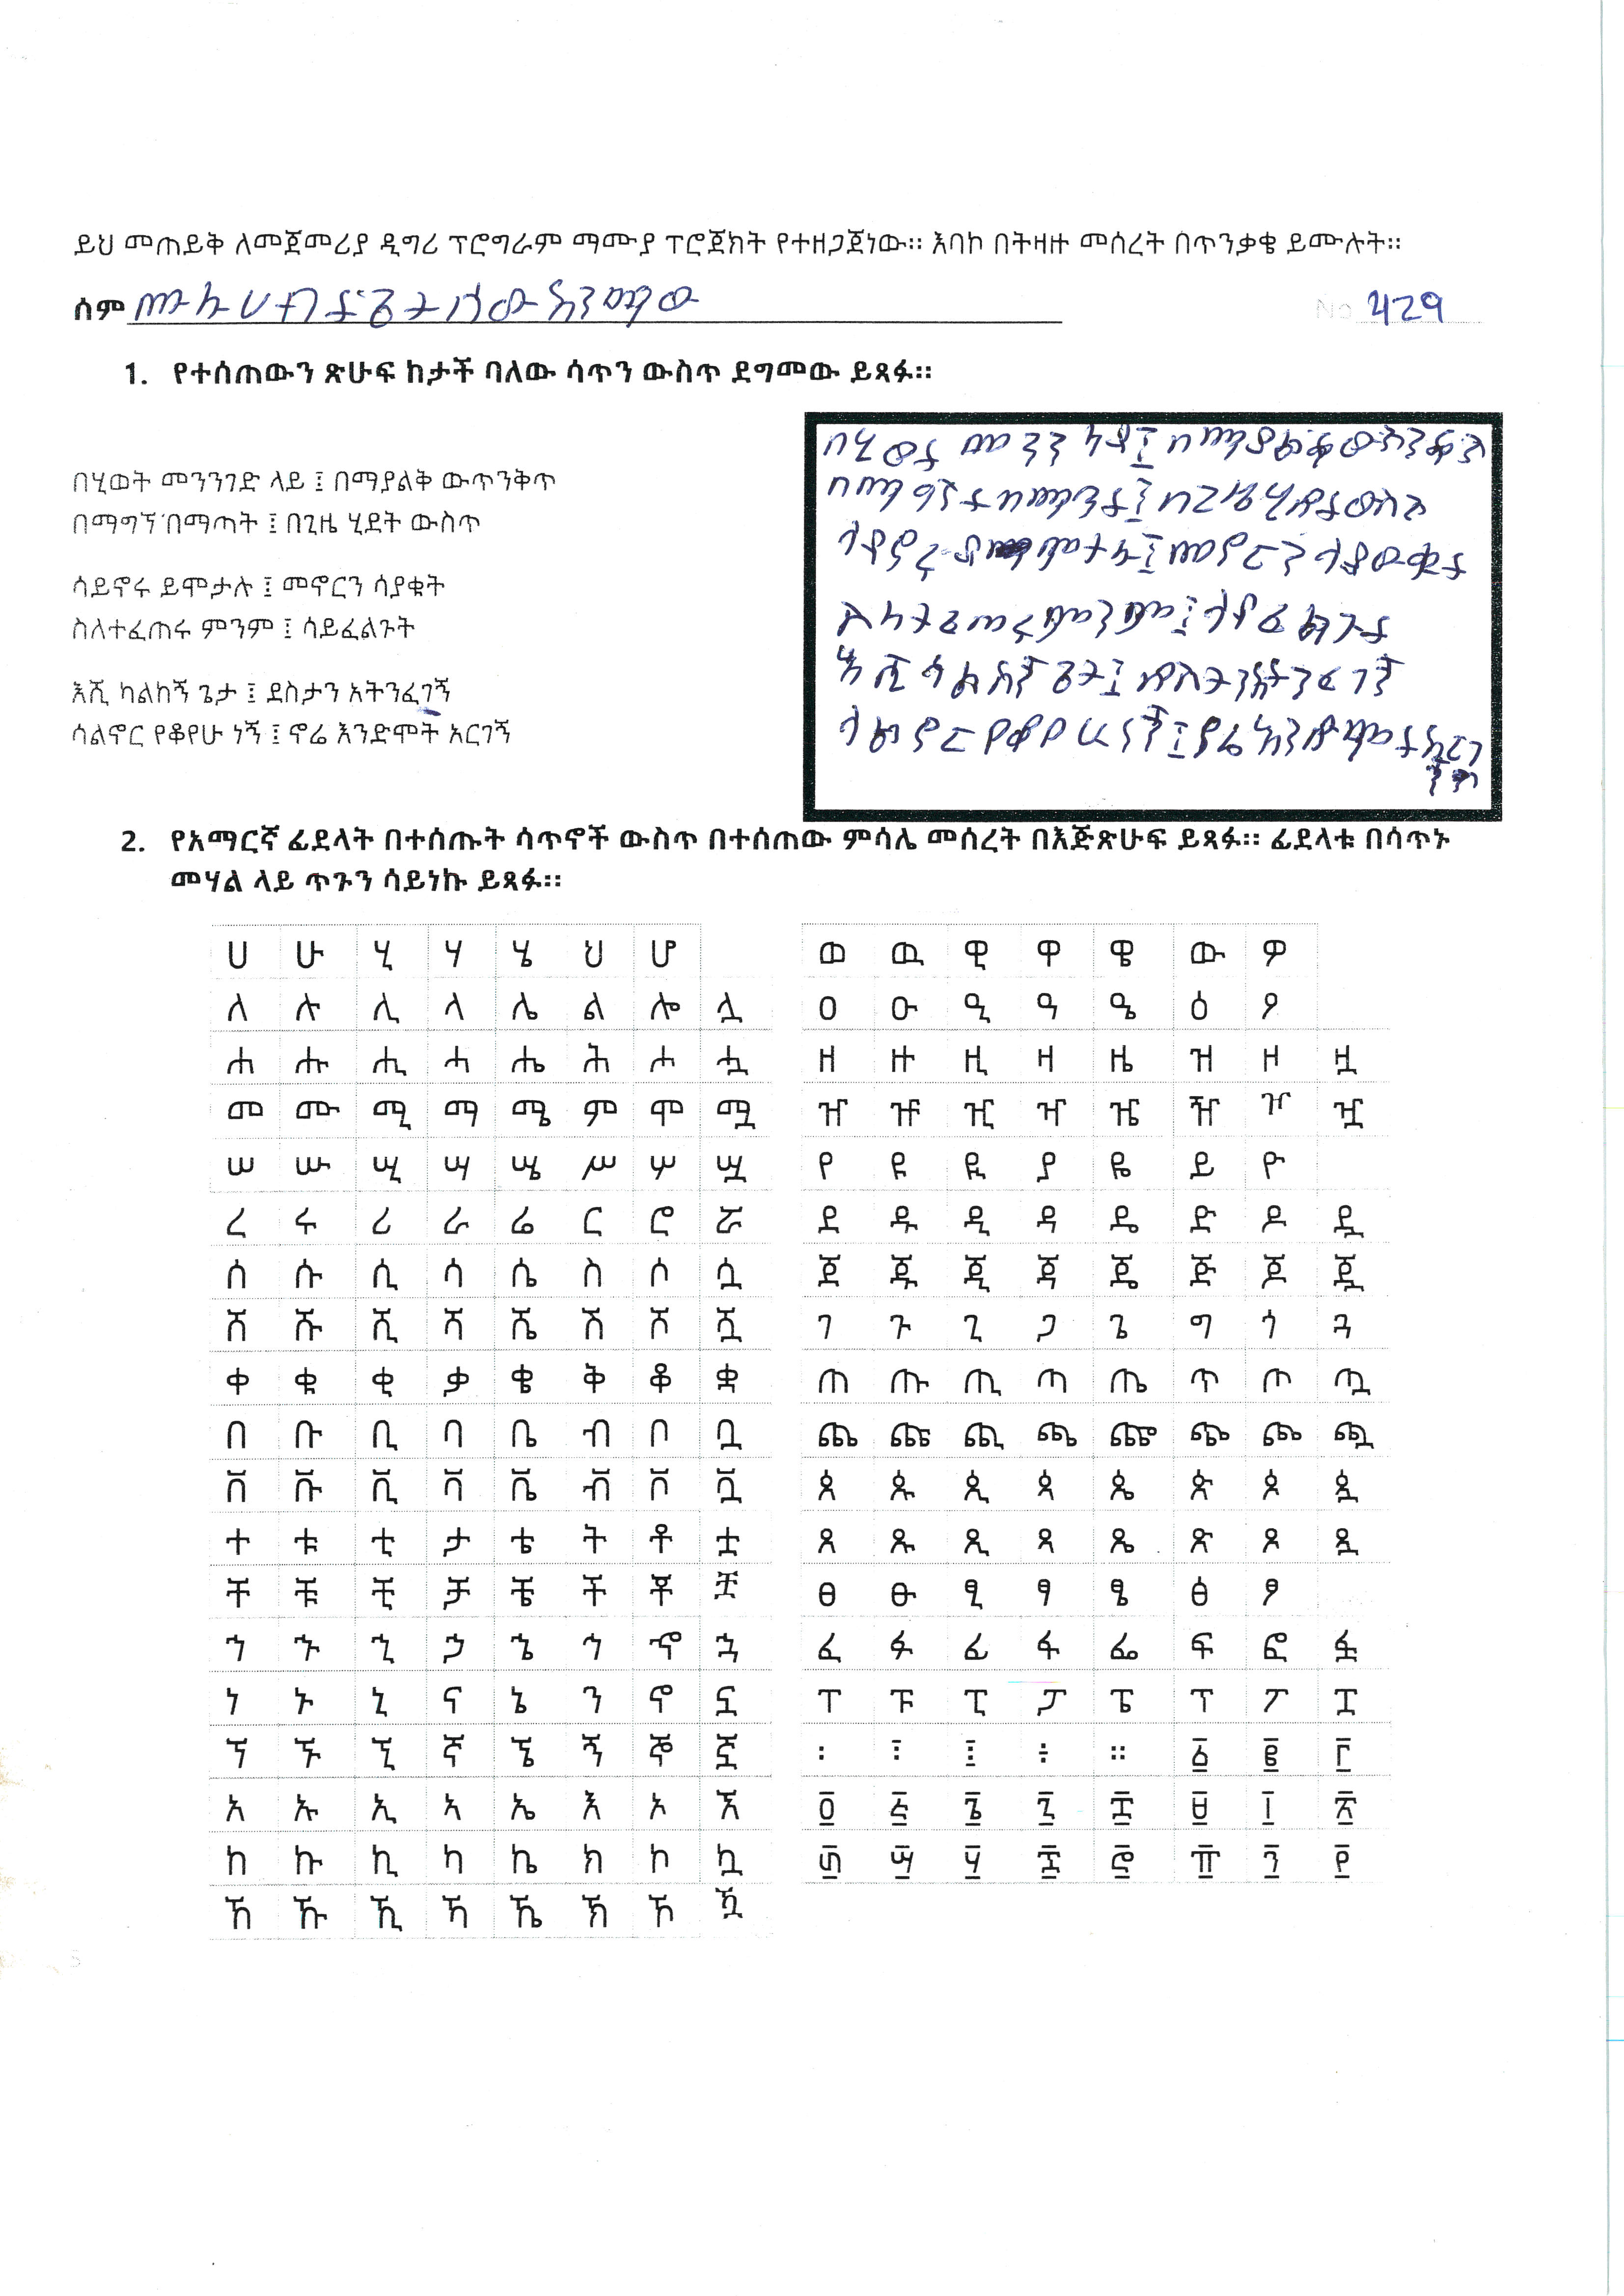 ይህ መጠይቅ ለመጀመሪያ ዲግሪ ፕሮግራም ማሙያ ፕሮጀክት የተዘጋጀነው። እባኮ በትዛዙ መሰረት በጥንቃቄ ይሙሉት።
ስም
No 429
1. የተሰጠውን ጽሁፍ ከታች ባለው ሳጥን ውስጥ ደግመው ይጻፉ።
በሂወት መንንገድ ላይ ፤ በማያልቅ ውጥንቅጥ
በማግኘ በማጣት ፤ በጊዜ ሂደት ውስጥ
ሳይኖሩ ይሞታሉ ፤ መኖርን ሳያቁት
ስለተፈጠሩ ምንም ፤ ሳይፈልጉት
እሺ ካልከኝ ጌታ ፤ ደስታን አትንፈገኝ
ሳልኖር የቆየሁ ነኝ ፤ ኖሬ እንድሞት አርገኝ
በሂወት መንን ላይ፤ በማያልቅ ውጥንቅጥ
በማግኘት በማጣት፤ በጊዜ ሂደት ውስጥ
ሳይኖሩ ይሞታሉ፤ መኖርን ሳያውቁት
ስለተፈጠሩ ምንም፤ ሳይፈልጉት
እሺ ካልከኝ ጌታ፤ ደስታን አትንፈገኝ
ሳልኖር የቆየሁ ነኝ፤ ኖሬ እንድሞት አርገ
ኝ
2. የአማርኛ ፊደላት በተሰጡት ሳጥኖች ውስጥ በተሰጠው ምሳሌ መሰረት በእጅጽሁፍ ይጻፉ። ፊደላቱ በሳጥኑ
መሃል ላይ ጥጉን ሳይነኩ ይጻፉ።
ሀ ሁ ሂ ሃ ሄ ህ ሆ
ለ ሉ ሊ ላ ሌ ል ሎ ሏ
ሐ ሑ ሒ ሓ ሔ ሕ ሖ ሗ
መ ሙ ሚ ማ ሜ ም ሞ ሟ
ሠ ሡ ሢ ሣ ሤ ሥ ሦ ሧ
ረ ሩ ሪ ራ ሬ ር ሮ ሯ
ሰ ሱ ሲ ሳ ሴ ስ ሶ ሷ
ሸ ሹ ሺ ሻ ሼ ሽ ሾ ሿ
ቀ ቁ ቂ ቃ ቄ ቅ ቆ ቋ
በ ቡ ቢ ባ ቤ ብ ቦ ቧ
ቨ ቩ ቪ ቫ ቬ ቭ ቮ ቯ
ተ ቱ ቲ ታ ቴ ት ቶ ቷ
ቸ ቹ ቺ ቻ ቼ ች ቾ ቿ
ኀ ኁ ኂ ኃ ኄ ኅ ኆ ኋ
ነ ኑ ኒ ና ኔ ን ኖ ኗ
ኘ ኙ ኚ ኛ ኜ ኝ ኞ ኟ
አ ኡ ኢ ኣ ኤ እ ኦ ኧ
ከ ኩ ኪ ካ ኬ ክ ኮ ኳ
ኸ ኹ ኺ ኻ ኼ ኽ ኾ ዃ
ወ ዉ ዊ ዋ ዌ ው ዎ
ዐ ዑ ዒ ዓ ዔ ዕ ዖ
ዘ ዙ ዚ ዛ ዜ ዝ ዞ ዟ
ዠ ዡ ዢ ዣ ዤ ዥ ዦ ዧ
የ ዩ ዪ ያ ዬ ይ ዮ
ደ ዱ ዲ ዳ ዴ ድ ዶ ዷ
ጀ ጁ ጂ ጃ ጄ ጅ ጆ ጇ
ገ ጉ ጊ ጋ ጌ ግ ጎ ጓ
ጠ ጡ ጢ ጣ ጤ ጥ ጦ ጧ
ጨ ጩ ጪ ጫ ጬ ጭ ጮ ጯ
ጰ ጱ ጲ ጳ ጴ ጵ ጶ ጷ
ጸ ጹ ጺ ጻ ጼ ጽ ጾ ጿ
ፀ ፁ ፂ ፃ ፄ ፅ ፆ
ፈ ፉ ፊ ፋ ፌ ፍ ፎ ፏ
ፐ ፑ ፒ ፓ ፔ ፕ ፖ ፗ
፡ ፣ ፤ ÷ ። ፩ ፪ ፫
፬ ፭ ፮ ፯ ፰ ፱ ፲ ፳
፴ ፵ ፶ ፷ ፸ ፹ ፺ ፻